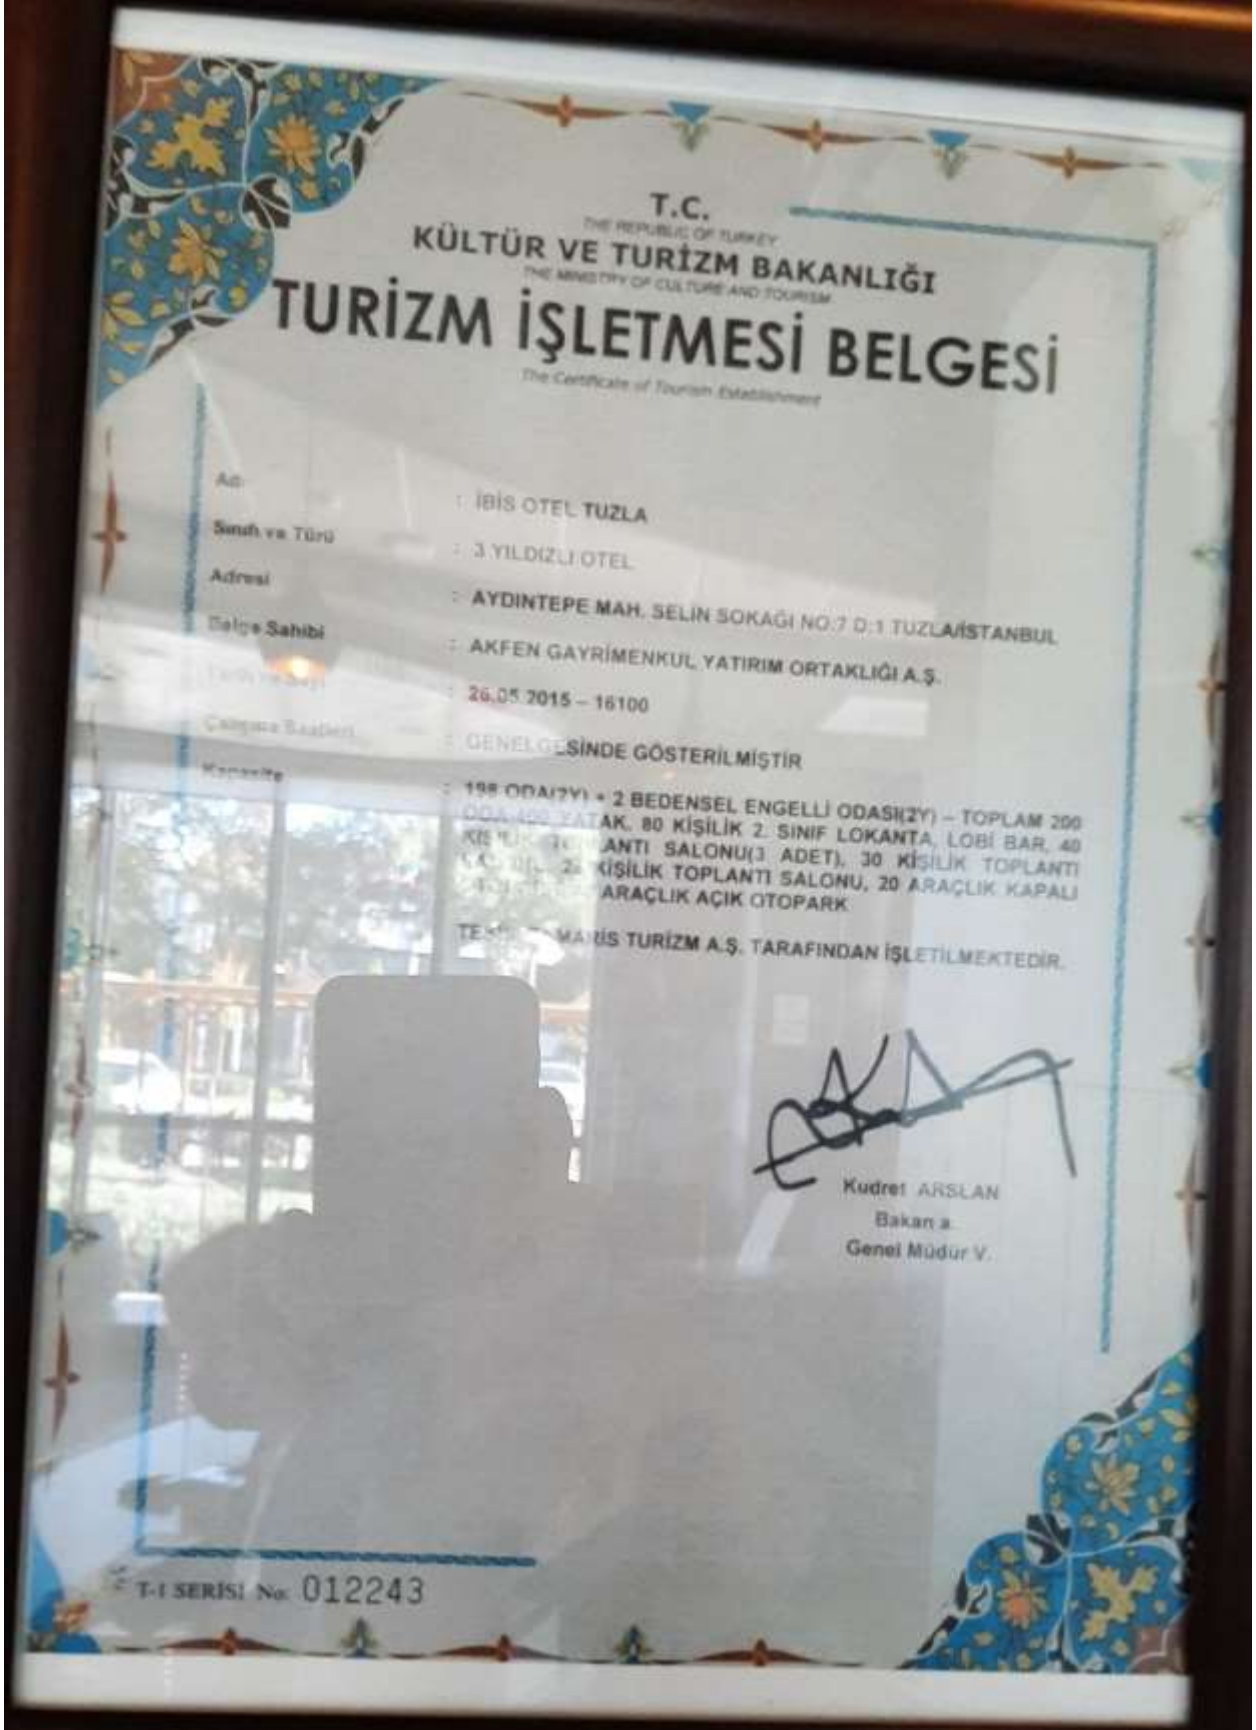 T.C.
THE REPUBLIC OF TURKEY
KÜLTÜR VE TURİZM BAKANLIĞI
THE MINISTRY OF CULTURE AND TOURISM
TURİZM İŞLETMESİ BELGESİ
The Certificate of Tourism Establishment
Adı : İBİS OTEL TUZLA
Sınıfı ve Türü : 3 YILDIZLI OTEL
Adresi : AYDINTEPE MAH. SELİN SOKAĞI NO:7 D:1 TUZLA/İSTANBUL
Belge Sahibi : AKFEN GAYRİMENKUL YATIRIM ORTAKLIĞI A.Ş.
: 26.05.2015 – 16100
Çalışma Saatleri : GENELGESİNDE GÖSTERİLMİŞTİR
Kapasite : 198 ODA(2Y) + 2 BEDENSEL ENGELLİ ODASI(2Y) – TOPLAM 200
ODA 400 YATAK, 80 KİŞİLİK 2. SINIF LOKANTA, LOBİ BAR, 40
KİŞİLİK TOPLANTI SALONU(3 ADET), 30 KİŞİLİK TOPLANTI
KİŞİLİK TOPLANTI SALONU, 20 ARAÇLIK KAPALI
ARAÇLIK AÇIK OTOPARK
TURİZM A.Ş. TARAFINDAN İŞLETİLMEKTEDİR.
Kudret ARSLAN
Bakan a.
Genel Müdür V.
T-1 SERİSİ No: 012243